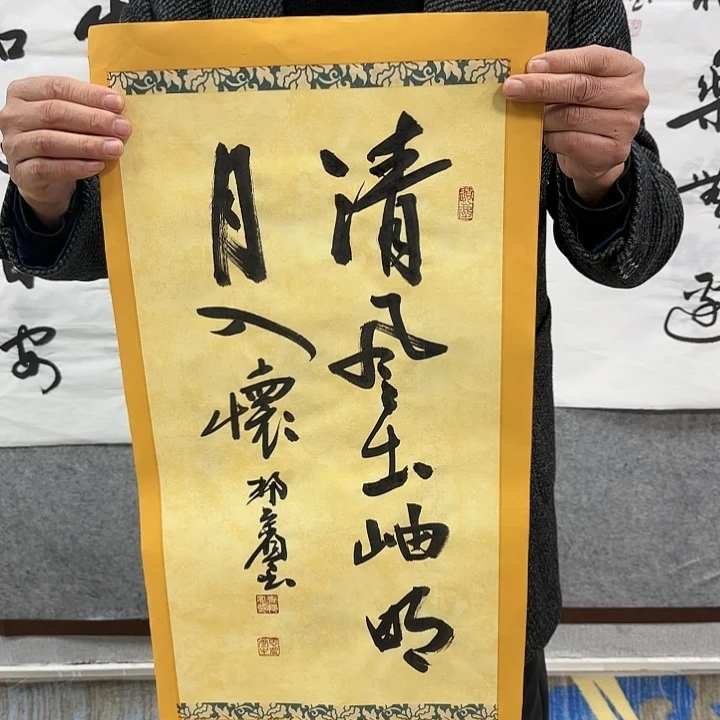 清風出岫明
月入懷